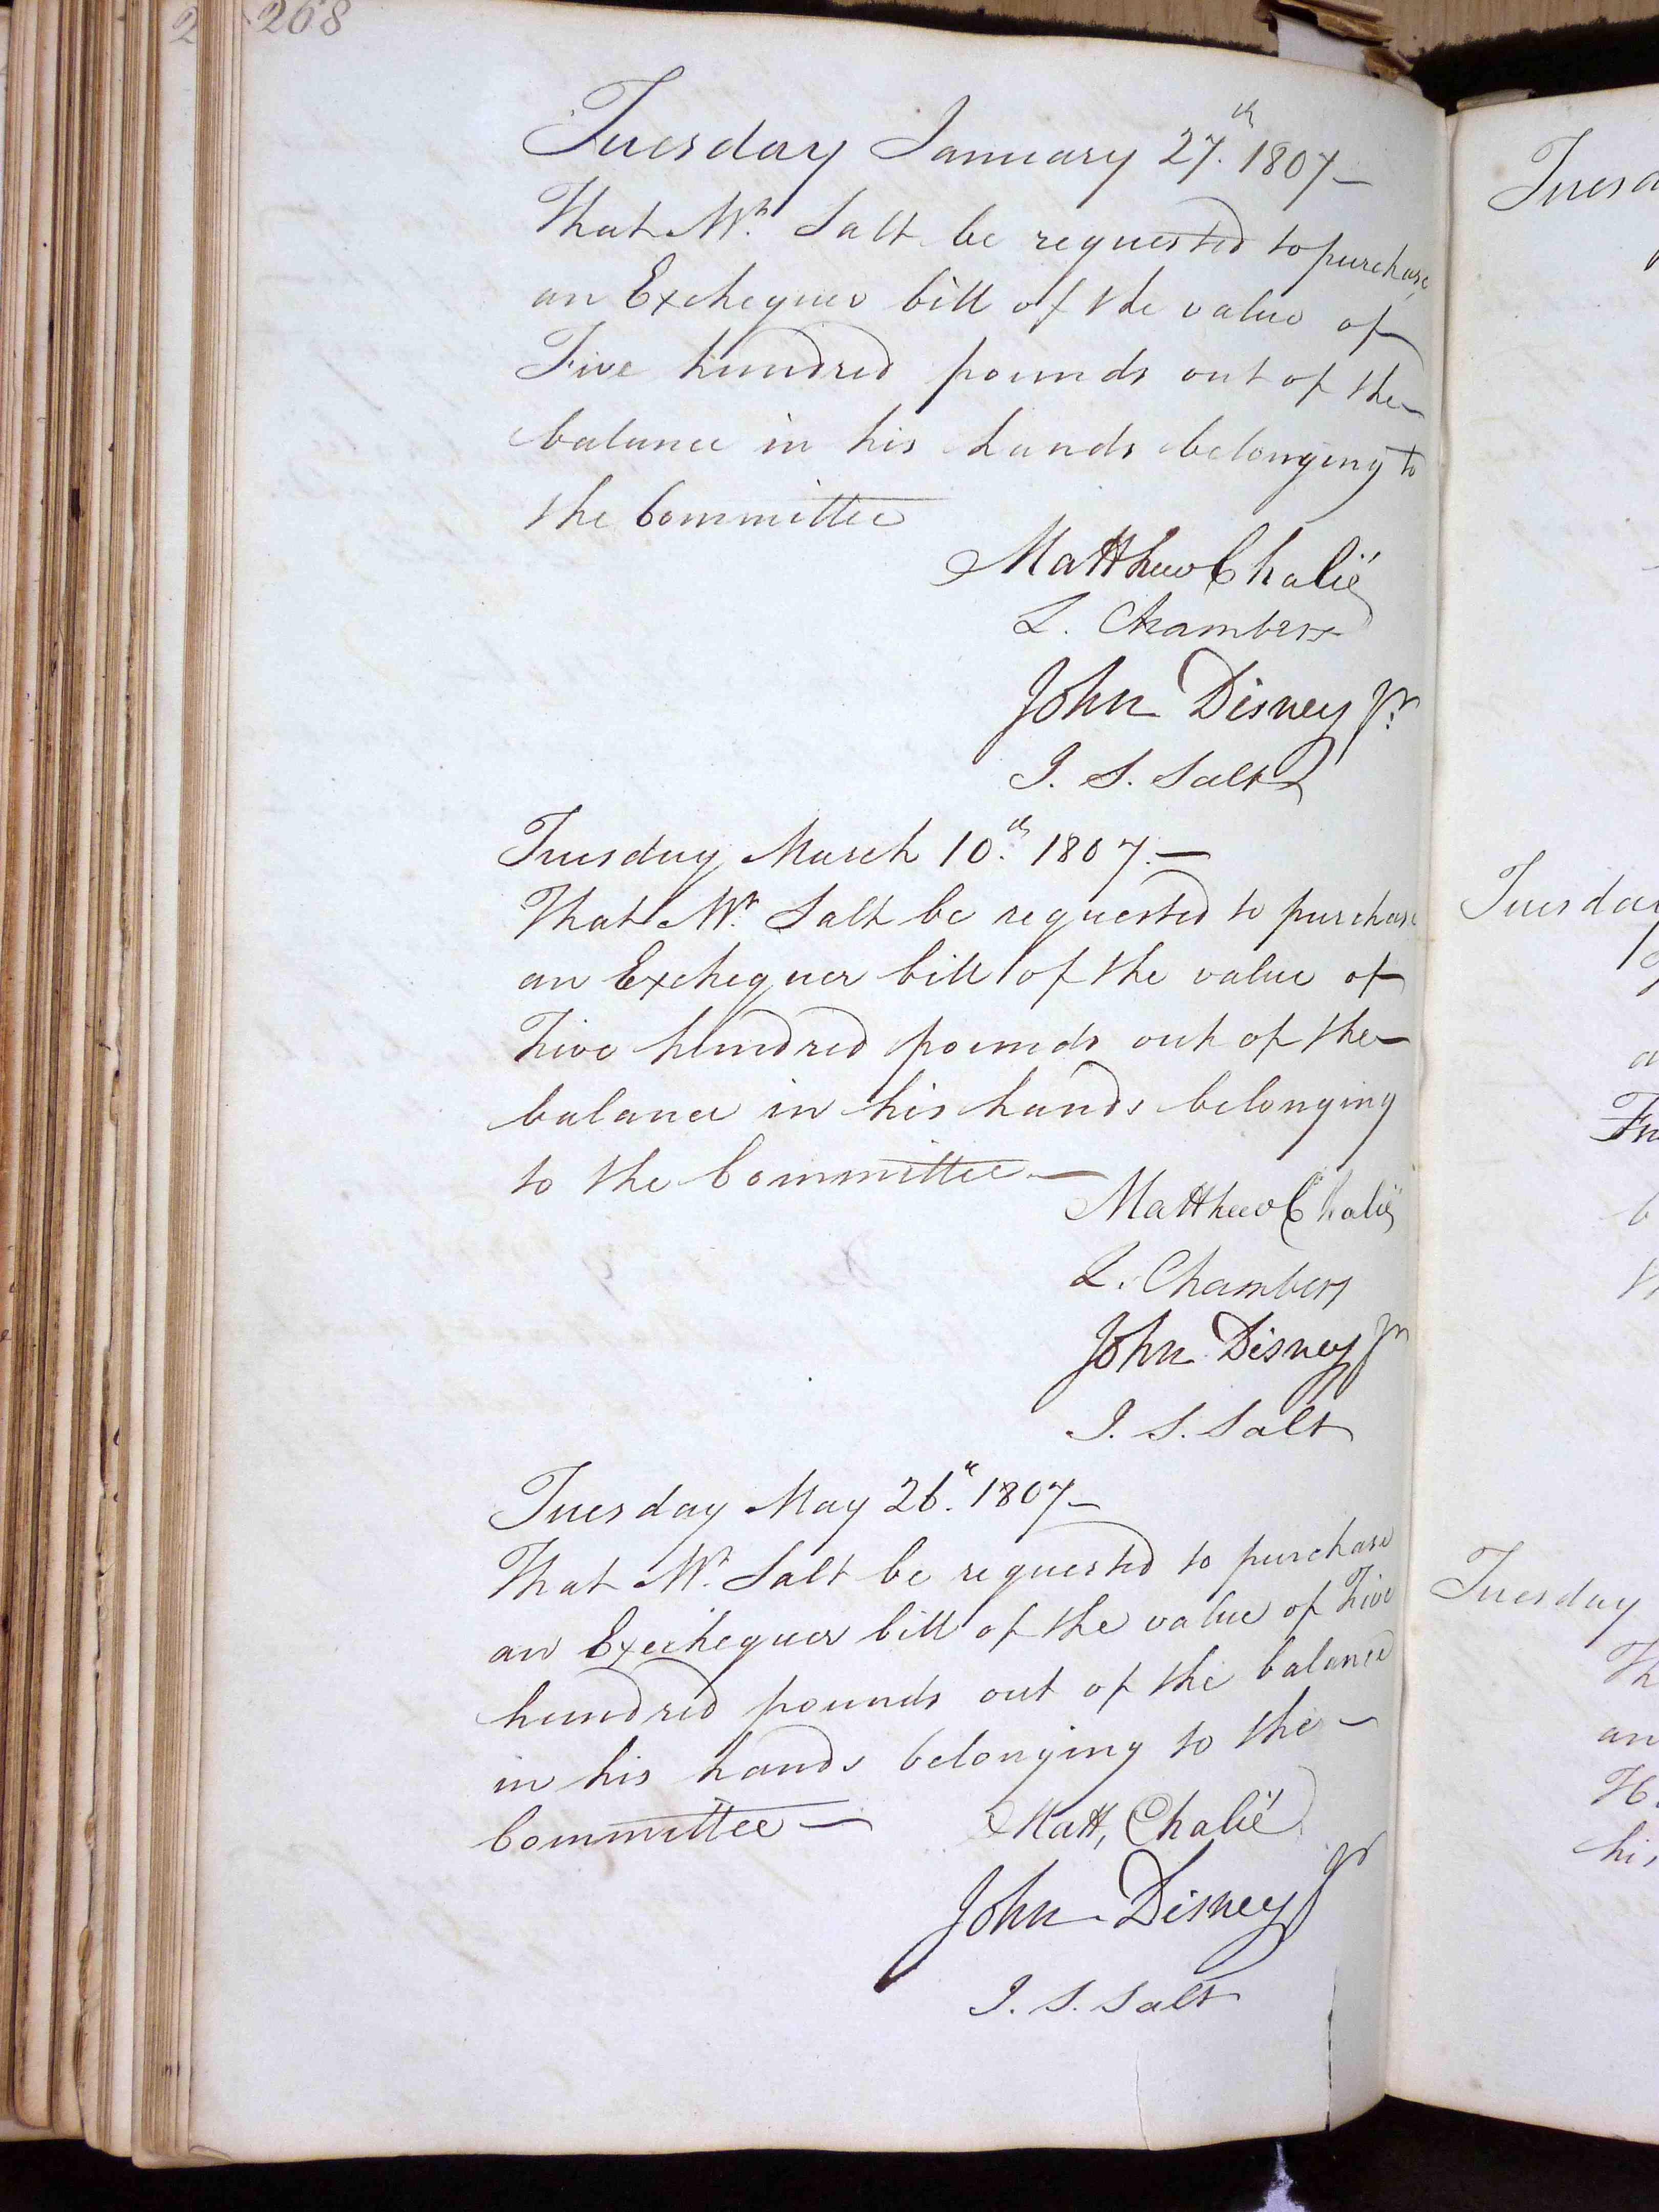 268
Tuesday January 27.th 1807_
That Mr. Salt be requested to purchase
an Exchequer bill of the value of
Five hundred pounds out of the
balance in his hands belonging to
the Committee
Matthew Chalié
L. Chambers
John Disney Jr.
J. S. Salt
Tuesday March 10.th 1807._
That Mr. Salt be requested to purchase
an Exchequer bill of the value of
Five hundred pounds out of the
balance in his hands belonging
to the Committee_
Matthew Chalié
L. Chambers
John Disney Jr
J. S. Salt
Tuesday May 26.th 1807_
That Mr. Salt be requested to purchase
an Exechequer bill of the value of Five
hundred pounds out of the balance
in his hands belonging to the_
Committee_
Matt, Chalié
John Disney Jr
J. S. Salt
Tuesday
an
Tuesday
an
his